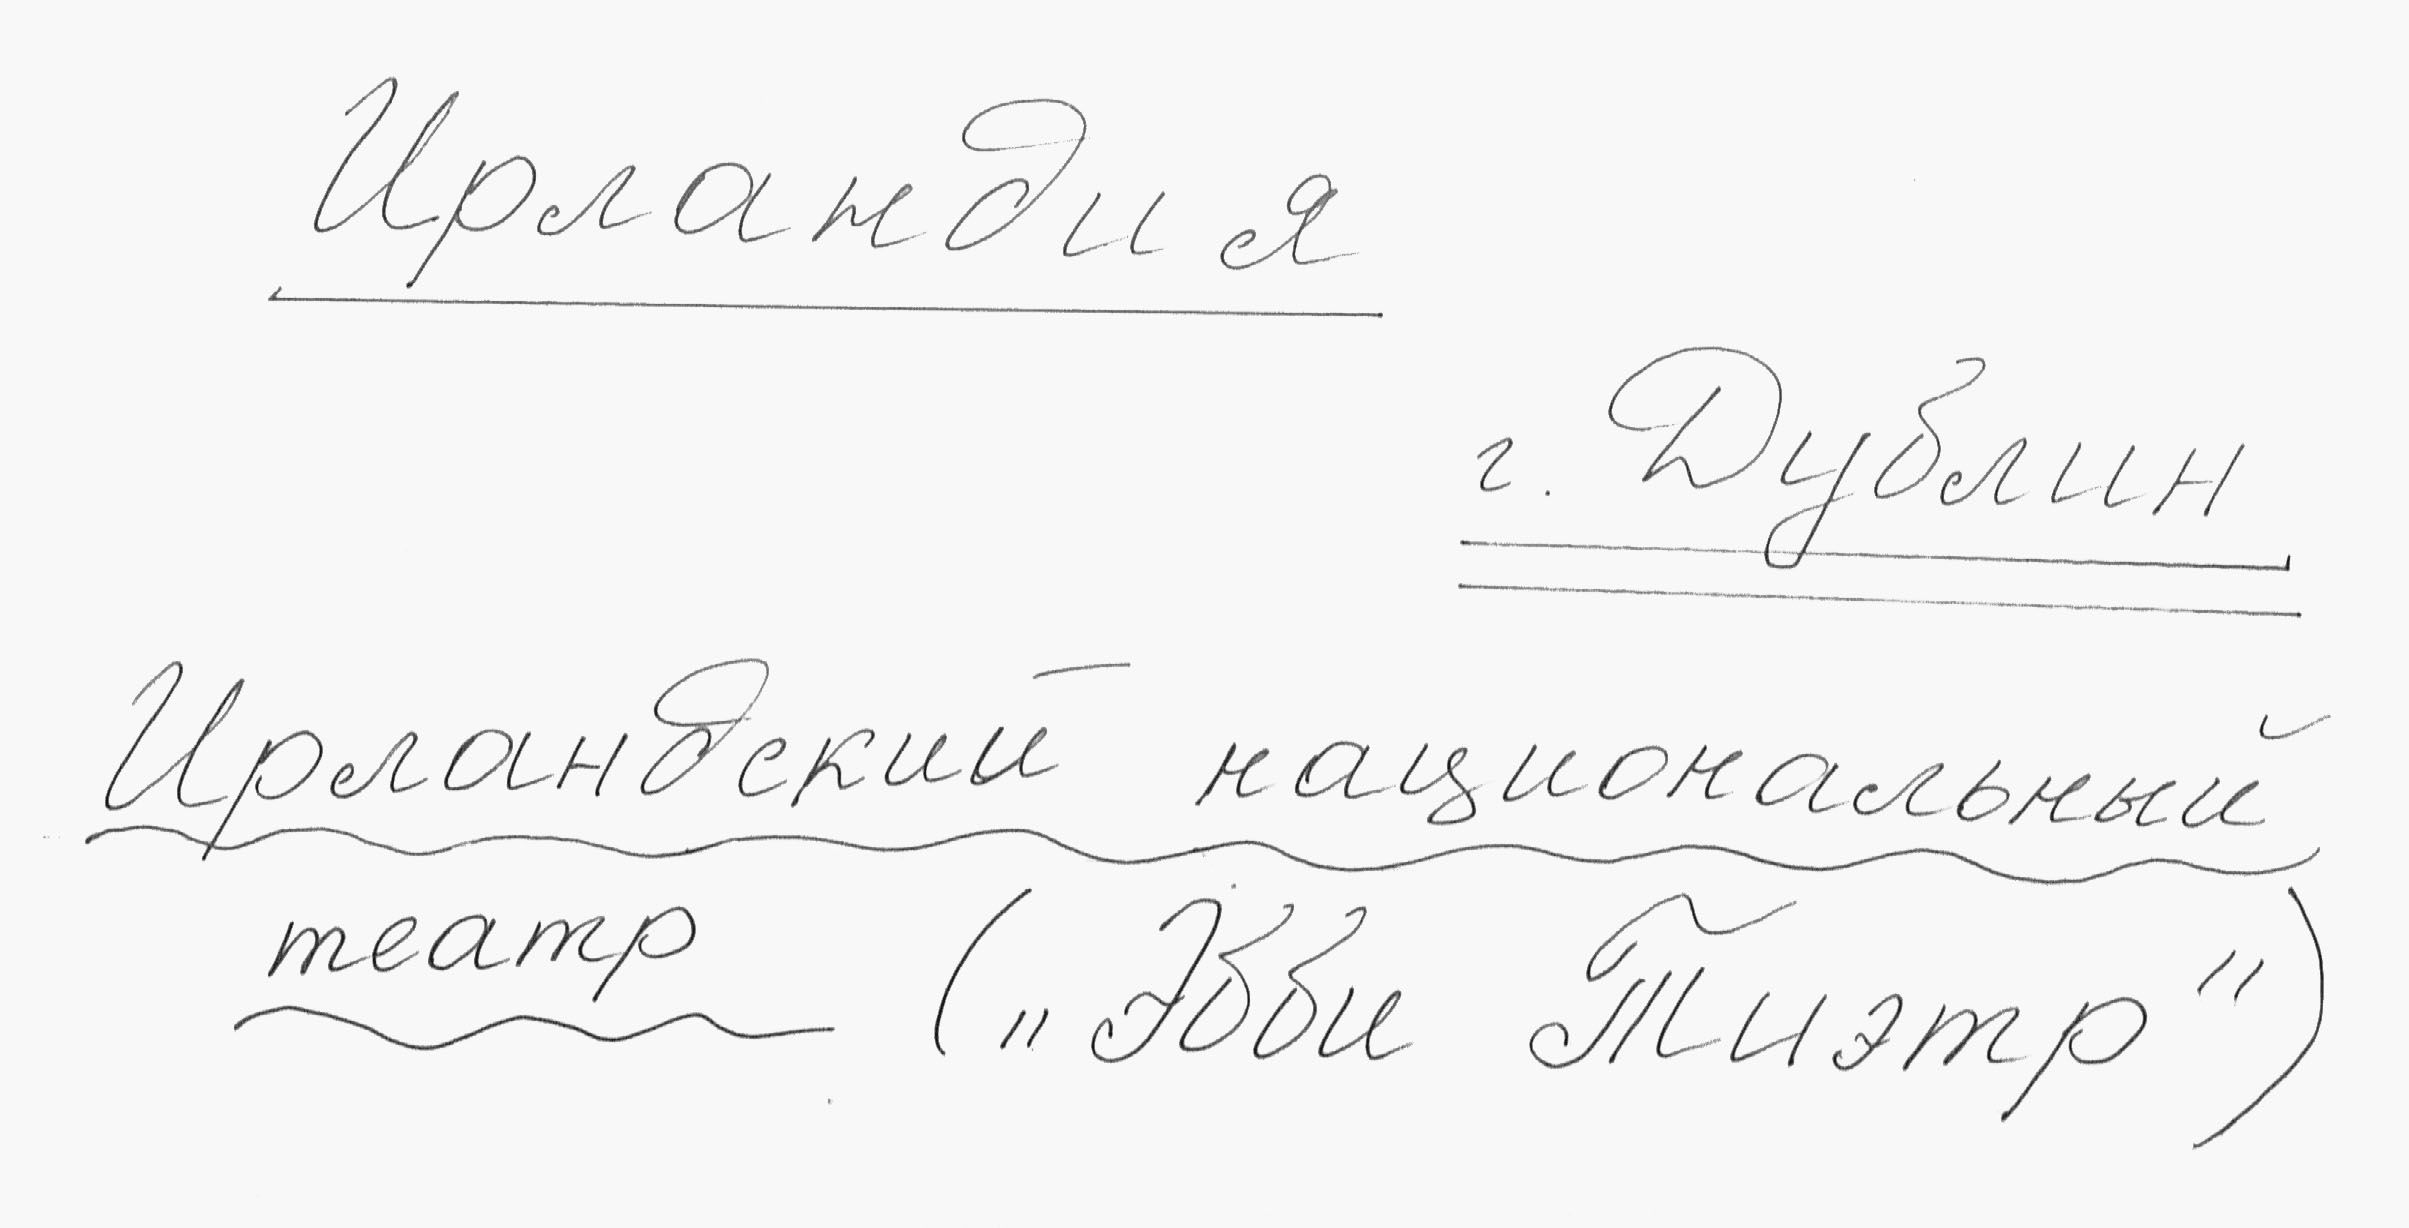 Ирландия
г. Дублин
Ирландский национальный
театр („Эбби Тиэтр")